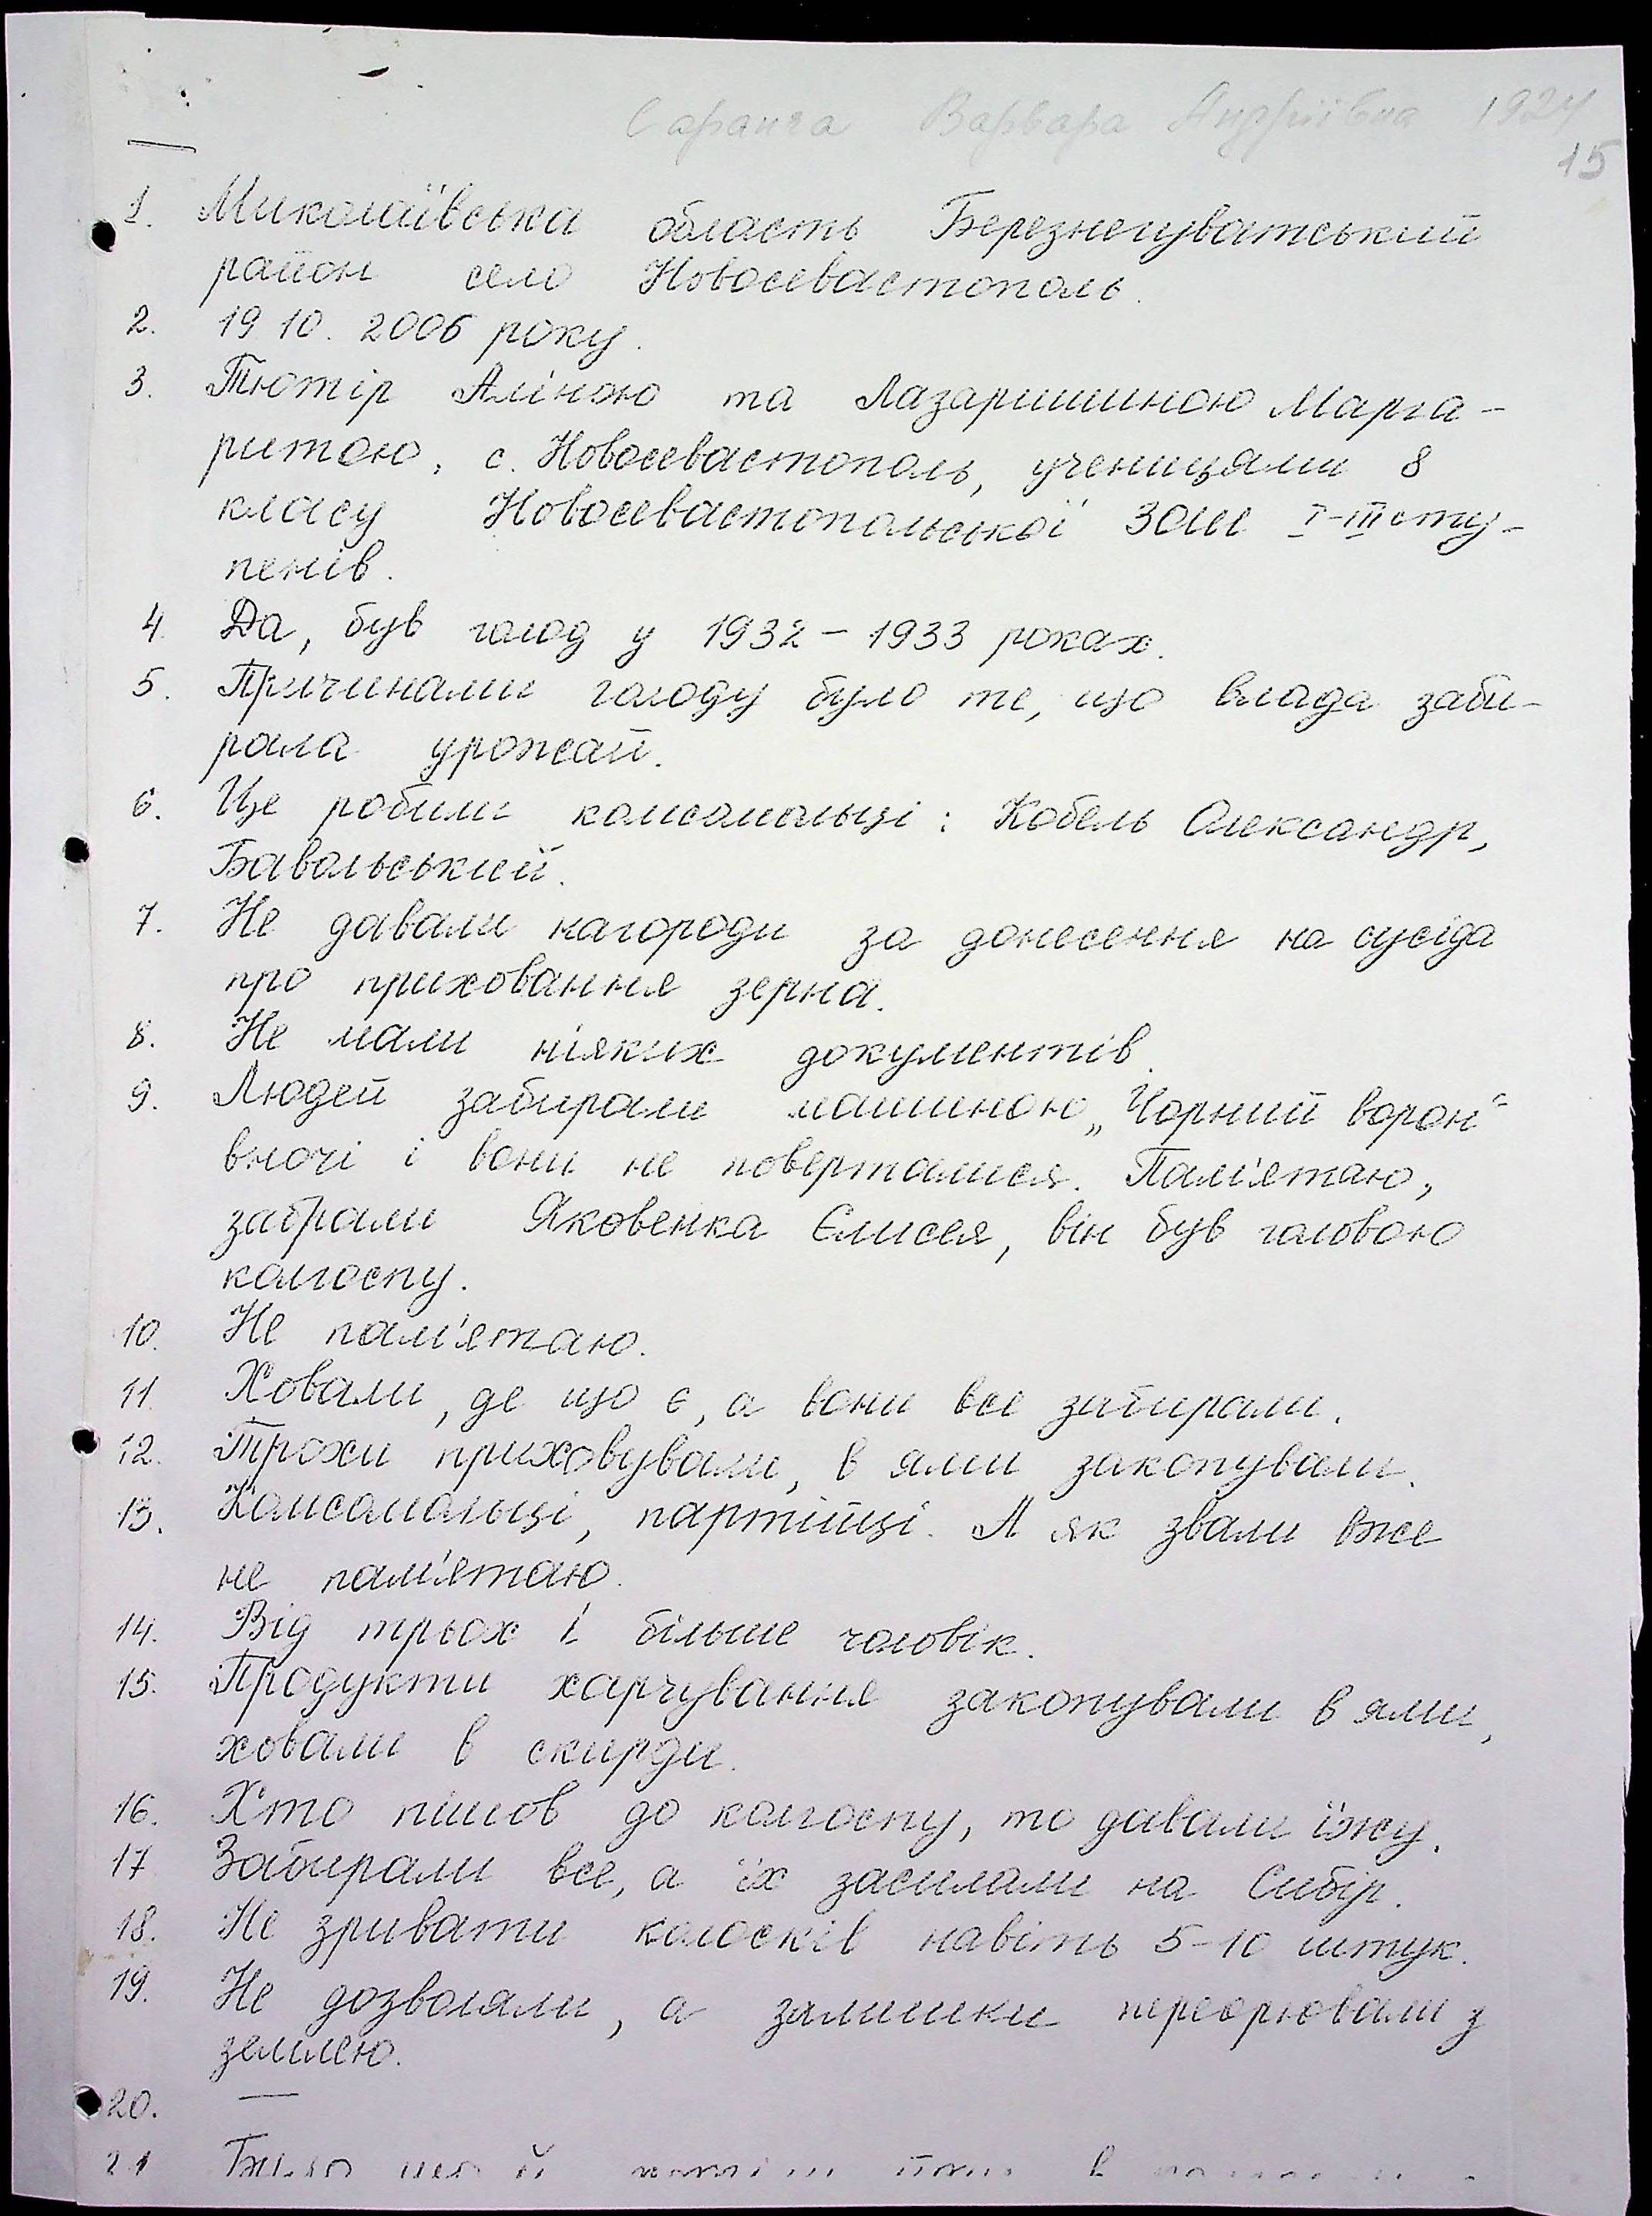 Саранча Варвара Андріївна 1924
15
1. Миколаївська область Березнегуватський
район село Новосевастополь.
2. 19 10. 2006 року.
3. Тютір Аліною та Лазаришиною Марга-
ритою, с. Новосевастополь, ученицями 8
класу Новосевастопольської ЗОШ I-III сту-
пенів.
4. Да, був голод у 1932 - 1933 роках.
5. Причинами голоду було те, що влада заби-
рала урожай.
6. Це робили комсомольці: Кобель Олександр,
Бавольський.
7. Не давали нагороди за донесення на сусіда
про приховання зерна.
8. Не мали ніяких документів.
9. Людей забирали машиною „Чорний ворон"
вночі і вони не поверталися. Пам'ятаю,
забрали Яковенка Єлисея, він був головою
колгоспу.
10. Не пам'ятаю.
11. Ховали, де що є, а вони все забирали.
12. Трохи приховували, в ями закопували.
13. Комсомольці, партійці. А як звали вже
не пам'ятаю.
14. Від трьох і більше чоловік.
15. Продукти харчування закопували в ями,
ховали в скирди.
16. Хто пішов до колгоспу, то давали їжу.
17 Забирали все, а їх засилали на Сибір.
18. Не зривати колосків навіть 5-10 штук.
19. Не дозволяли, а залишки переорювали з
землею.
20. —
21